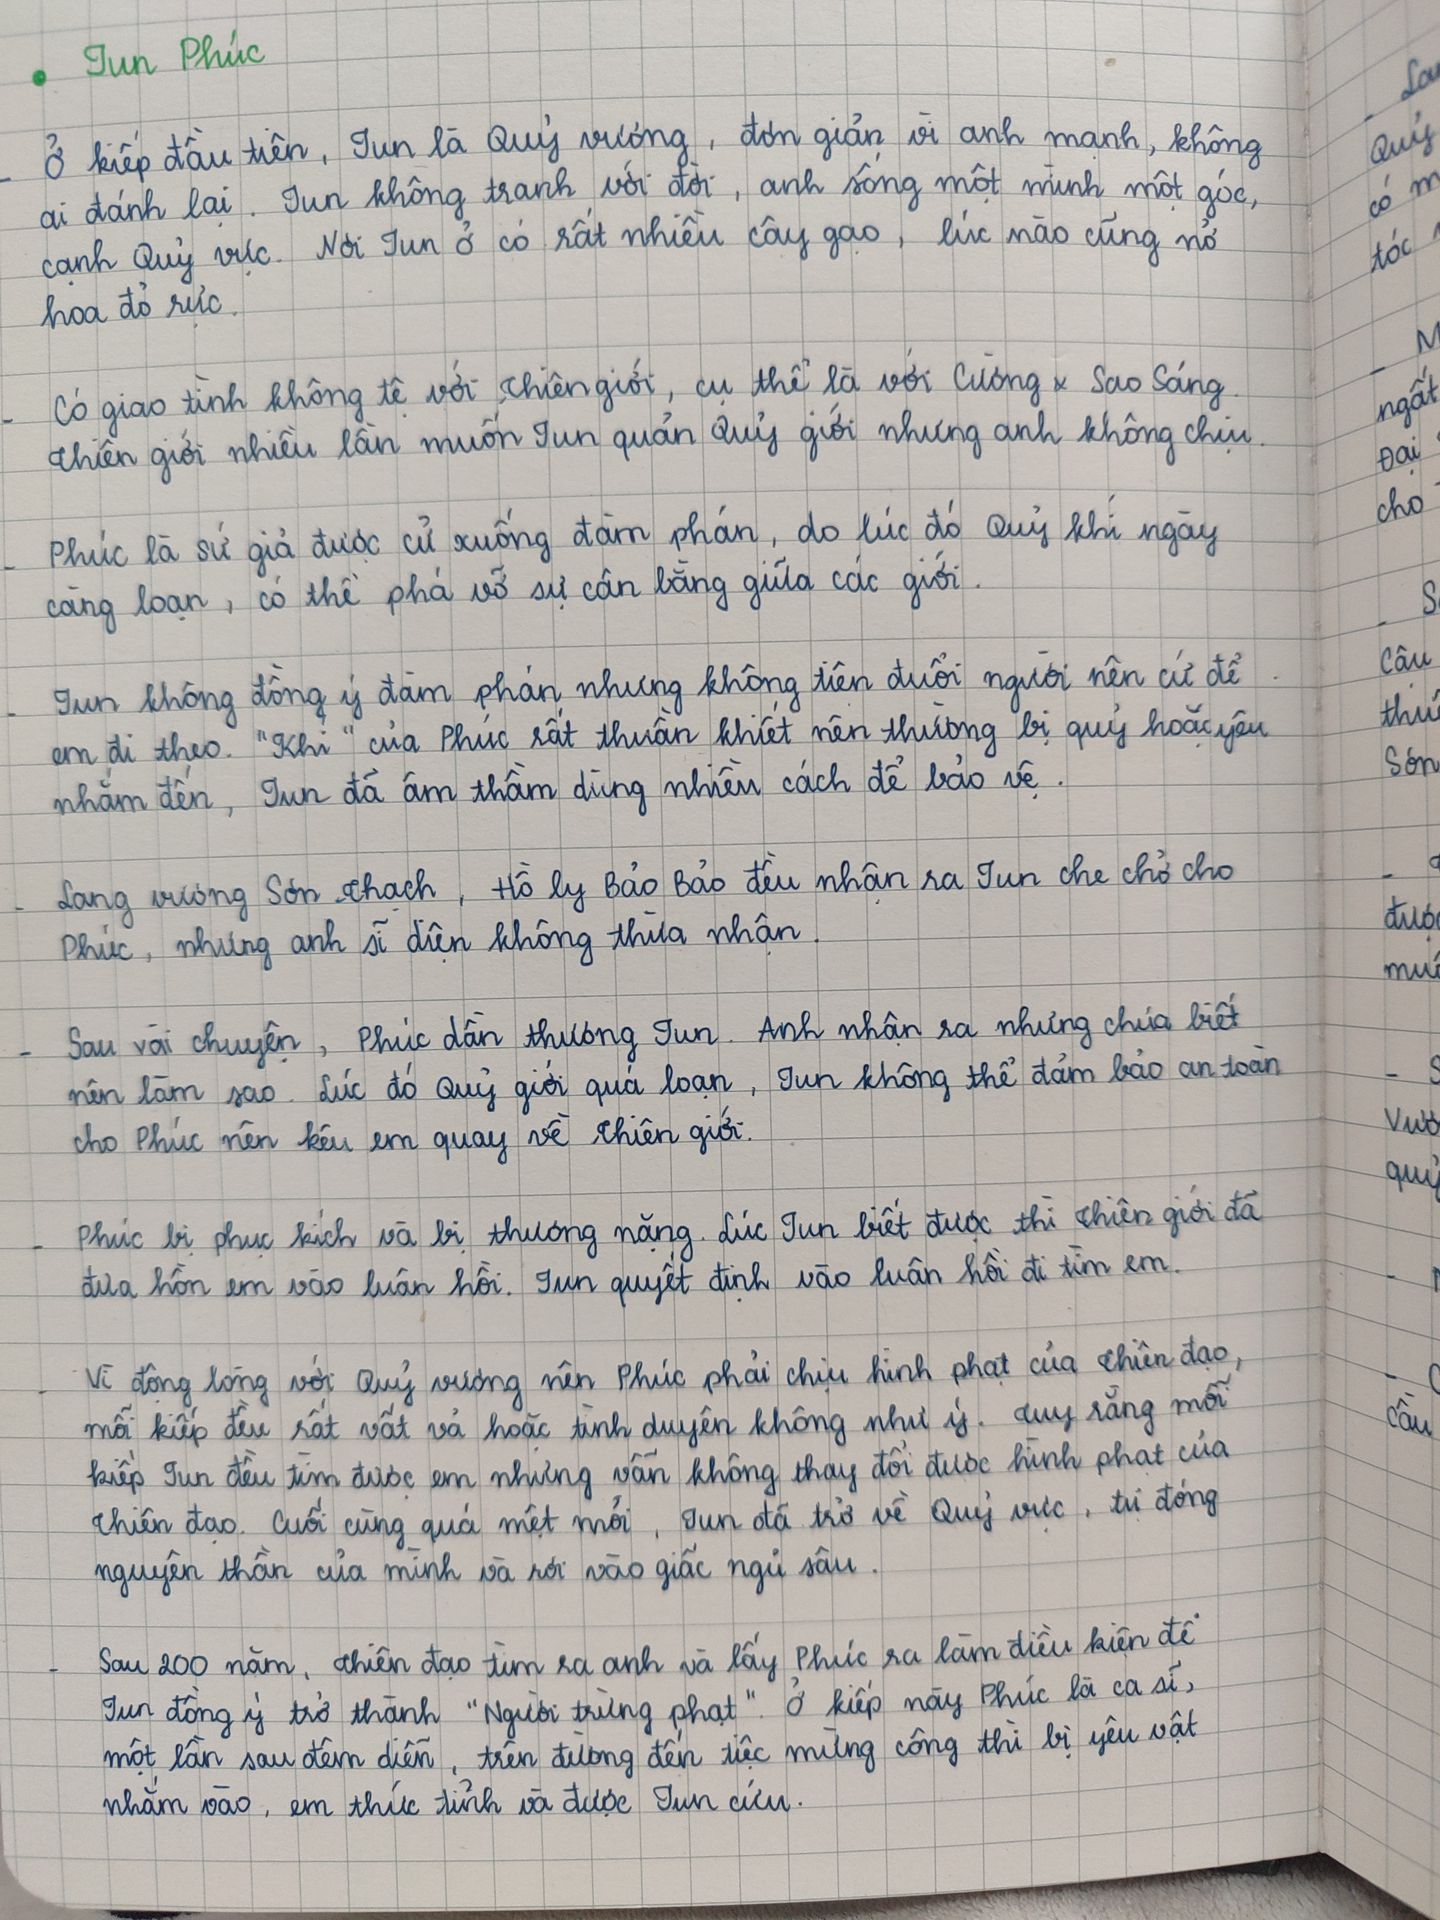 • Jun Phúc
- Ở kiếp đầu tiên, Jun là Quỷ vương, đơn giản vì anh mạnh, không
ai đánh lại. Jun không tranh với đời, anh sống một mình một góc,
cạnh Quỷ vực. Nơi Jun ở có rất nhiều cây gạo, lúc nào cũng nở
hoa đỏ rực.
- Có giao tình không tệ với Thiên giới, cụ thể là với Cường x Sao Sáng.
Thiên giới nhiều lần muốn Jun quản Quỷ giới nhưng anh không chịu.
- Phúc là sứ giả được cử xuống đàm phán, do lúc đó Quỷ khí ngày
càng loạn, có thể phá vỡ sự cân bằng giữa các giới.
- Jun không đồng ý đàm phán nhưng không tiện đuổi người nên cứ để
em đi theo. "Khí" của Phúc rất thuần khiết nên thường bị quỷ hoặc yêu
nhắm đến, Jun đã âm thầm dùng nhiều cách để bảo vệ.
- Lang vương Sơn Thạch, Hồ ly Bảo Bảo đều nhận ra Jun che chở cho
Phúc, nhưng anh sĩ diện không thừa nhận.
- Sau vài chuyện, Phúc dần thương Jun. Anh nhận ra nhưng chưa biết
nên làm sao. Lúc đó Quỷ giới quá loạn, Jun không thể đảm bảo an toàn
cho Phúc nên kêu em quay về Thiên giới.
- Phúc bị phục kích và bị thương nặng. Lúc Jun biết được thì Thiên giới đã
đưa hồn em vào luân hồi. Jun quyết định vào luân hồi đi tìm em.
- Vì động lòng với Quỷ vương nên Phúc phải chịu hình phạt của Thiên đạo,
mỗi kiếp đều rất vất vả hoặc tình duyên không như ý. Tuy rằng mỗi
kiếp Jun đều tìm được em nhưng vẫn không thay đổi được hình phạt của
Thiên đạo. Cuối cùng quá mệt mỏi, Jun đã trở về Quỷ vực, tự đóng
nguyên thần của mình và rơi vào giấc ngủ sâu.
- Sau 200 năm, Thiên đạo tìm ra anh và lấy Phúc ra làm điều kiện để
Jun đồng ý trở thành "Người trừng phạt". Ở kiếp này Phúc là ca sĩ,
một lần sau đêm diễn, trên đường đến tiệc mừng công thì bị yêu vật
nhắm vào, em thức tỉnh và được Jun cứu.
Quỷ
có m
tóc
ngất
Đại
cho
Câu
Sơn
được
quỷ
cầu